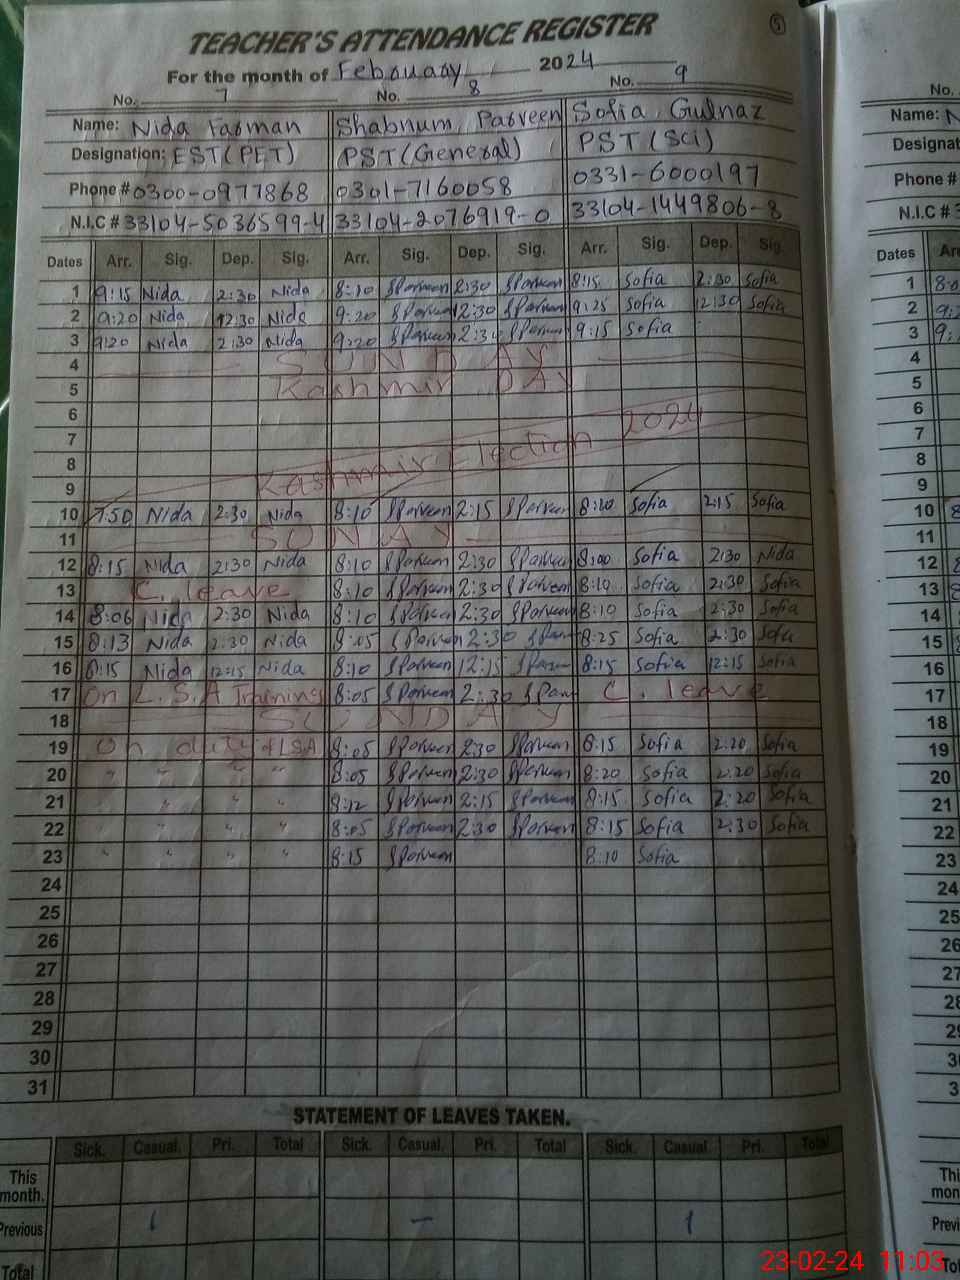 5
TEACHER'S ATTENDANCE REGISTER
For the month of February 2024
No. 7 No. 8 No. 9
Name: Nida Farman Shabnum Parveen Sofia Gulnaz
Designation: EST(PET) PST(General) PST(Sci)
Phone # 0300-0977868 0301-7160058 0331-6000197
N.I.C # 33104-5036599-4 33104-2076919-0 33104-1449806-8
Dates Arr. Sig. Dep. Sig. Arr. Sig. Dep. Sig. Arr. Sig. Dep. Sig.
1 9:15 Nida 2:30 Nida 8:10 SParveen 2:30 SParveen 8:15 Sofia 2:30 Sofia
2 9:20 Nida 12:30 Nida 9:20 SParveen 12:30 SParveen 9:25 Sofia 12:30 Sofia
3 9:20 Nida 2:30 Nida 9:20 SParveen 2:30 SParveen 9:15 Sofia
4 SUNDAY
5 Kashmir DAY
6
7
8 Kashmir Election 2024
9
10 7:50 Nida 2:30 Nida 8:10 SParveen 2:15 SParveen 8:20 Sofia 2:15 Sofia
11 SUNAY
12 8:15 Nida 2:30 Nida 8:10 SParveen 2:30 SParveen 8:00 Sofia 2:30 Nida
13 C. leave 8:10 SParveen 2:30 SParveen 8:10 Sofia 2:30 Sofia
14 8:06 Nida 2:30 Nida 8:10 SParveen 2:30 SParveen 8:10 Sofia 2:30 Sofia
15 8:13 Nida 2:30 Nida 8:05 SParveen 2:30 SParv 8:25 Sofia 2:30 Sofia
16 8:15 Nida 12:15 Nida 8:10 SParveen 12:15 SParv 8:15 Sofia 12:15 Sofia
17 On L.S.A Trainings 8:05 SParveen 2:30 SParv C. leave
18 SUNDAY
19 On duty of LSA 8:05 SParveen 2:30 SParveen 8:15 Sofia 2:20 Sofia
20 " " " " 8:05 SParveen 2:30 SParveen 8:20 Sofia 2:20 Sofia
21 " " " " 8:12 SParveen 2:15 SParveen 8:15 Sofia 2:20 Sofia
22 " " " " 8:05 SParveen 2:30 SParveen 8:15 Sofia 2:30 Sofia
23 " " " " 8:15 SParveen 8:10 Sofia
24
25
26
27
28
29
30
31
STATEMENT OF LEAVES TAKEN.
Sick. Casual. Pri. Total Sick. Casual Pri. Total Sick. Casual Pri. Total
This month.
Previous 1 - 1
Total
No.
Name: N
Designat
Phone #
N.I.C #
Dates
1
2
3
4
5
6
7
8
9
10
11
12
13
14
15
16
17
18
19
20
21
22
23
24
25
26
23-02-24 11:03